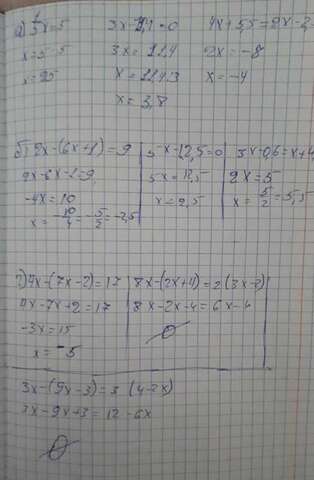 а) 1/5x=5
x=5·5
x=25
3x-11,4=0
3x=11,4
x=11,4:3
x=3,8
4x+5,5=2x-2,5
2x=-8
x=-4
б) 2x-(6x+1)=9
2x-6x-1=9
-4x=10
x=-10/4=-5/2=-2,5
5x-12,5=0
5x=12,5
x=2,5
3x-0,6=x+4,4
2x=5
x=5/2=5,5
г) 4x-(7x-2)=17
4x-7x+2=17
-3x=15
x=-5
8x-(2x+4)=2(3x-2)
8x-2x-4=6x-4
3x-(9x-3)=3(4-2x)
3x-9x+3=12-6x